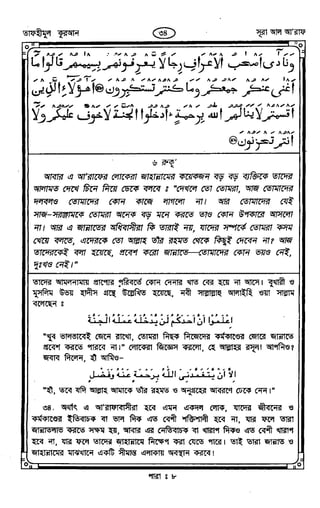 তাফহীমুল কুরআন ৩৪ সূরা আল আ'রাফ
وَنَادَىٰ أَصْحَابُ الْأَعْرَافِ رِجَالًا يَعْرِفُونَهُمْ بِسِيمَاهُمْ قَالُوا مَا
أَغْنَىٰ عَنْكُمْ جَمْعُكُمْ وَمَا كُنْتُمْ تَسْتَكْبِرُونَ أَهَٰؤُلَاءِ الَّذِينَ
أَقْسَمْتُمْ لَا يَنَالُهُمُ اللَّهُ بِرَحْمَةٍ ادْخُلُوا الْجَنَّةَ لَا خَوْفٌ عَلَيْكُمْ وَلَا
أَنْتُمْ تَحْزَنُونَ
৬ রুকূ'
আবার এ আ'রাফের লোকেরা জাহান্নামের কয়েকজন বড় বড় ব্যক্তিকে তাদের
আলামত দেখে চিনে নিয়ে ডেকে বলবে : "দেখলে তো তোমরা, আজ তোমাদের
দলবলও তোমাদের কোন কাজে লাগলো না। আর তোমাদের যেই
সাজ-সরঞ্জামকে তোমরা অনেক বড় মনে করতে তাও কোন উপকারে আসলো
না। আর এ জান্নাতের অধিবাসীরা কি তারাই নয়, যাদের সম্পর্কে তোমরা কসম
খেয়ে বলতে, এদেরকে তো আল্লাহ তাঁর রহমত থেকে কিছুই দেবেন না? আজ
তাদেরকেই বলা হয়েছে, প্রবেশ করো জান্নাতে—তোমাদের কোন ভয়ও নেই,
দুঃখও নেই।"
তাদের আমলনামায় প্রাপ্যের পরিবর্তে কোন দেনার খাত বের হয়ে না আসে। বুখারী ও
মুসলিম উভয় হাদীস গ্রন্থে উল্লেখিত হয়েছে, নবী সাল্লাল্লাহু আলাইহি ওয়া সাল্লাম
বলেছেন :
اعْلَمُوا أَنَّ أَحَدَكُمْ لَنْ يُدْخِلَهُ عَمَلُهُ الْجَنَّةَ
"খুব ভালভাবেই জেনে রাখো, তোমরা নিছক নিজেদের কর্মকাণ্ডের জোরে জান্নাতে
প্রবেশ করতে পারবে না।" লোকেরা জিজ্ঞেস করলো, হে আল্লাহর রসূল! আপনিও?
জবাব দিলেন, হাঁ আমিও–
إِلَّا أَنْ يَتَغَمَّدَنِيَ اللَّهُ بِرَحْمَةٍ مِنْهُ وَفَضْلٍ
"হাঁ, তবে যদি আল্লাহ আমাকে তাঁর রহমত ও অনুগ্রহের আবরণে ঢেকে নেন।"
৩৪. অর্থাৎ এ আ'রাফবাসীরা হবে এমন একদল লোক, যাদের জীবনের ও
কর্মকাণ্ডের ইতিবাচক বা ভাল দিক এত বেশী শক্তিশালী হবে না, যার ফলে তারা
জান্নাতলাভ করতে সক্ষম হয়, আবার এর নেতিবাচক বা খারাপ দিকও এত বেশী খারাপ
হবে না, যার ফলে তাদের জাহান্নামে নিক্ষেপ করা যেতে পারে। তাই তারা জান্নাত ও
জাহান্নামের মাঝখানে একটি সীমান্ত এলাকায় অবস্থান করবে।
পারা : ৮